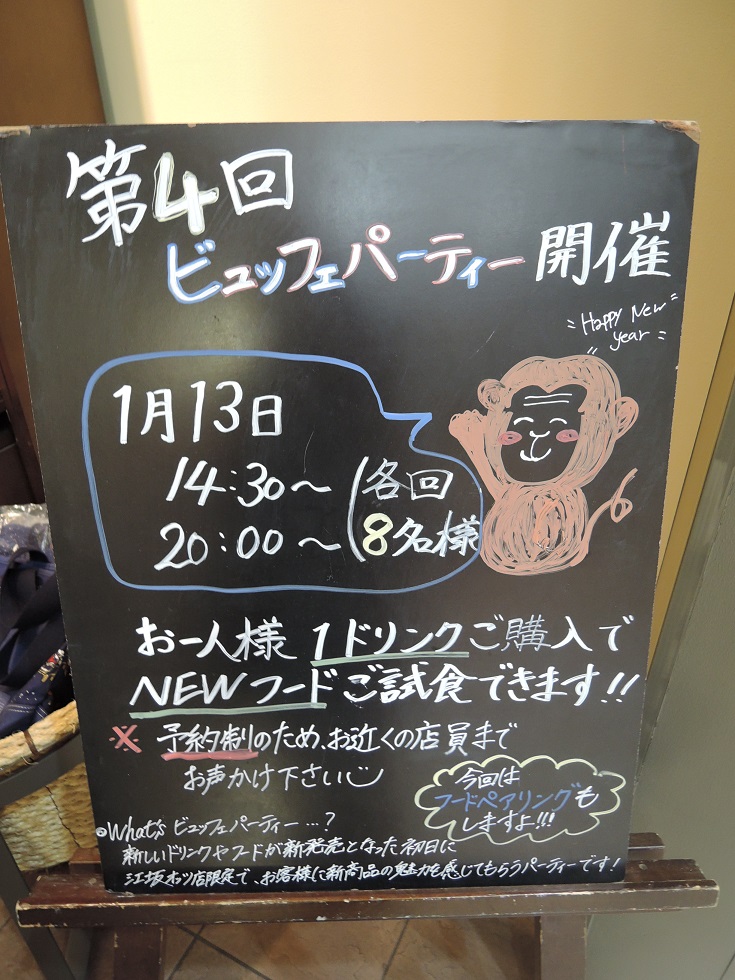 第4回
ビュッフェパーティー開催
"Happy New
year"
1月13日
14:30～
20:00～
(各回
8名様
お一人様 1ドリンクご購入で
NEWフードご試食できます!!
※ 予約制のため、お近くの店員まで
お声かけ下さい
今回は
フードペアリングも
しますよ!!!
What's ビュッフェパーティー…?
新しいドリンクやフードが新発売となった初日に
江坂オッツ店限定で、お客様に新商品の魅力を感じてもらうパーティーです!